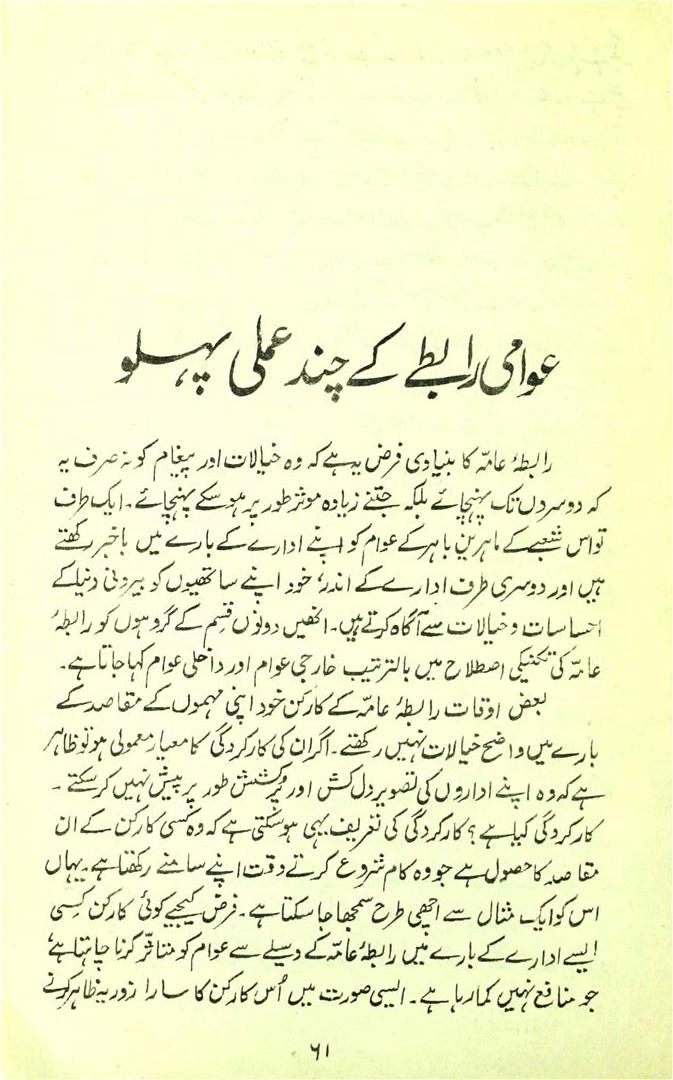 عوامی رابطے کے چند عملی پہلو
رابطۂ عامّہ کا بنیادی فرض یہ ہے کہ وہ خیالات اور پیغام کو نہ صرف یہ
کہ دوسروں تک پہنچائے بلکہ جتنے زیادہ موثر طور پر ہو سکے پہنچائے۔ ایک طرف
تو اس شعبے کے ماہرین باہر کے عوام کو اپنے ادارے کے بارے میں باخبر رکھتے
ہیں اور دوسری طرف ادارے کے اندر، خود اپنے ساتھیوں کو بیرونی دنیا کے
احساسات و خیالات سے آگاہ کرتے ہیں۔ انھیں دونوں قسم کے گروہوں کو رابطۂ
عامّہ کی تکنیکی اصطلاح میں بالترتیب خارجی عوام اور داخلی عوام کہا جاتا ہے۔
بعض اوقات رابطۂ عامّہ کے کارکن خود اپنی مہموں کے مقاصد کے
بارے میں واضح خیالات نہیں رکھتے۔ اگر ان کی کارکردگی کا معیار معمولی ہو تو ظاہر
ہے کہ وہ اپنے اداروں کی تصویر دل کش اور پُرکشش طور پر پیش نہیں کر سکتے۔
کارکردگی کیا ہے؟ کارکردگی کی تعریف یہی ہو سکتی ہے کہ وہ کسی کارکن کے ان
مقاصد کا حصول ہے جو وہ کام شروع کرتے وقت اپنے سامنے رکھتا ہے۔ یہاں
اس کو ایک مثال سے اچھی طرح سمجھا جا سکتا ہے۔ فرض کیجیے کوئی کارکن کسی
ایسے ادارے کے بارے میں رابطۂ عامّہ کے وسیلے سے عوام کو متاثر کرنا چاہتا ہے،
جو منافع نہیں کما رہا ہے۔ ایسی صورت میں اُس کارکن کا سارا زور یہ ظاہر کرنے
۶۱